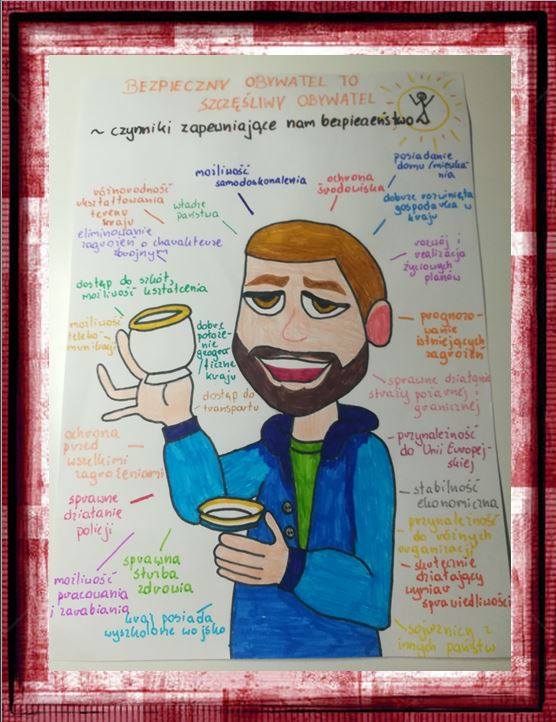 BEZPIECZNY OBYWATEL TO
SZCZĘŚLIWY OBYWATEL
~ czynniki zapewniające nam bezpieczeństwo
możliwość
samodoskonalenia
ochrona
środowiska
posiadanie
domu/mieszka-
nia
różnorodność
ukształtowania
terenu
kraju
władze
państwa
dobrze rozwinięta
gospodarka w
kraju
eliminowanie
zagrożeń o charakterze
zbrojnym
rozwój i
realizacja
życiowych
planów
dostęp do szkół,
możliwość kształcenia
możliwość
teleko-
munikacji
dobre
położe-
nie
geogra-
ficzne
kraju
progno-
wanie
istniejących
zagrożeń
dostęp do
transportu
sprawne działanie
straży pożarnej i
granicznej
ochrona
przed
wszelkimi
zagrożeniami
przynależność
do Unii Europej-
skiej
sprawne
działanie
policji
stabilność
ekonomiczna
przynależność
do różnych
organizacji
sprawna
służba
zdrowia
skutecznie
działający
wymiar
sprawiedliwości
możliwość
pracowania
i zarabiania
kraj posiada
wyszkolone wojsko
sojusznicy z
innych państw